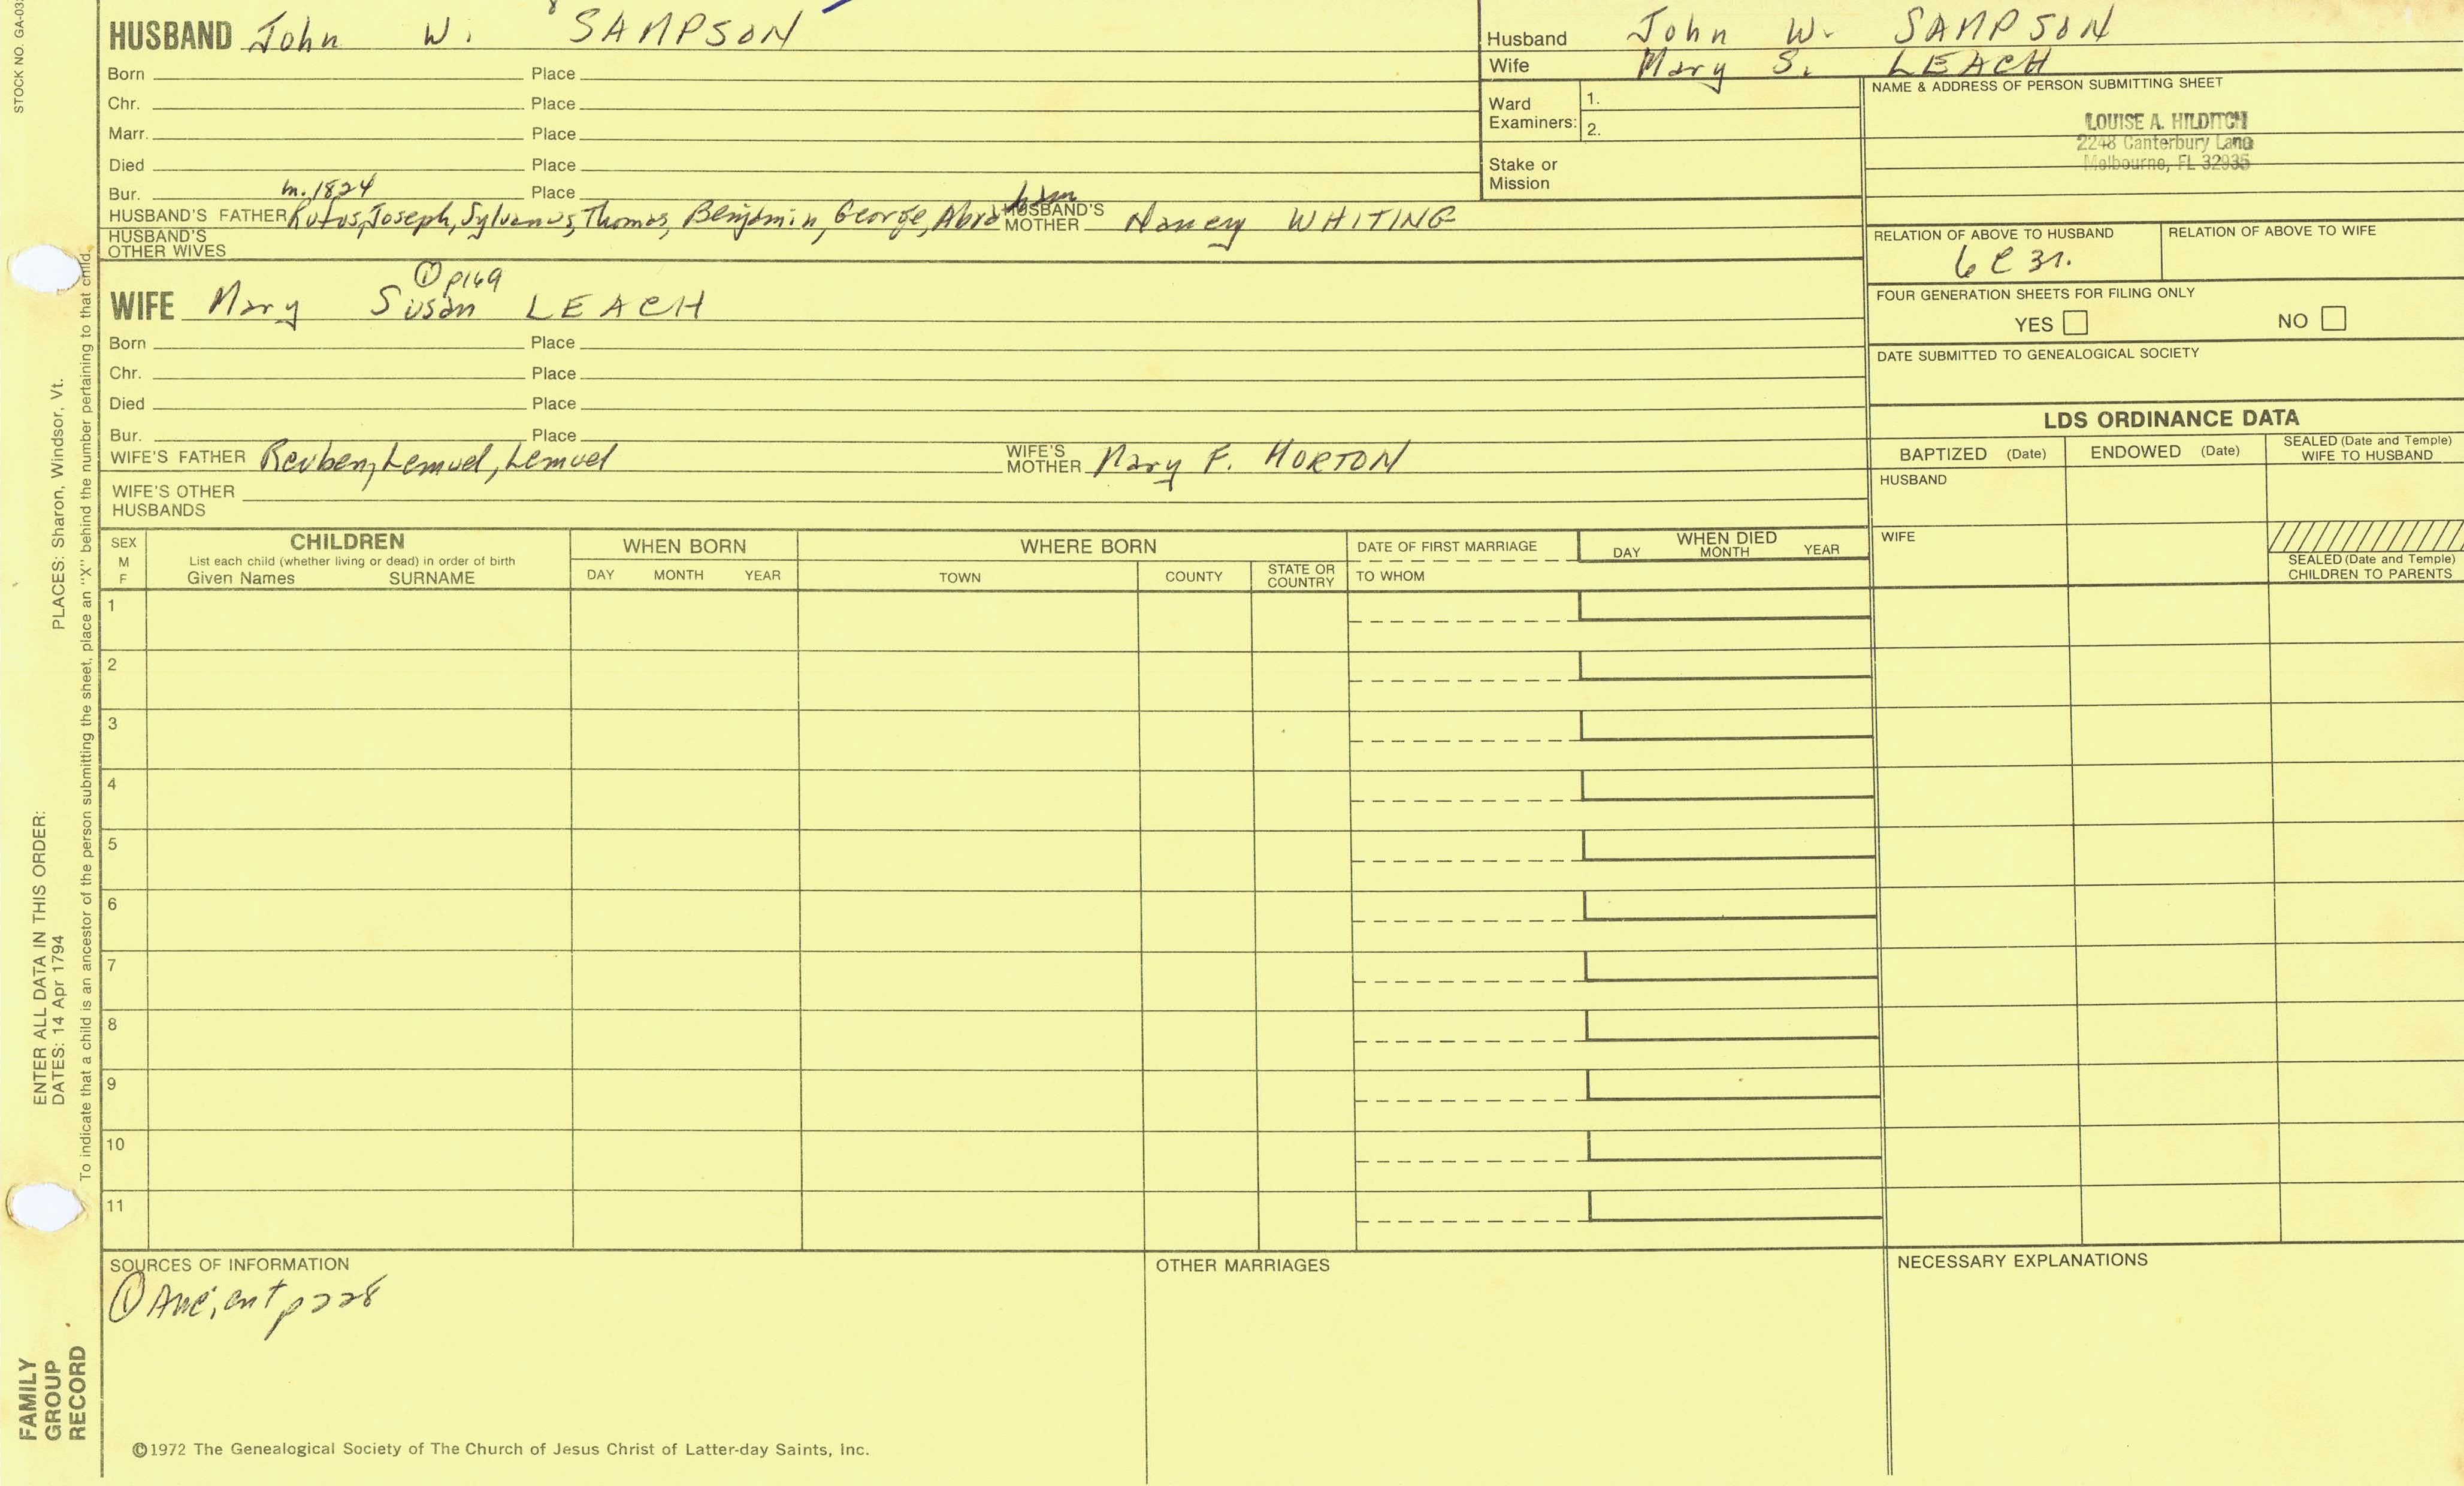 STOCK NO. GA-03
HUSBAND John W. SAMPSON
Born Place
Chr. Place
Marr. Place
Died Place
Bur. Place
m. 1824
HUSBAND'S FATHER Rufus, Joseph, Sylvanus, Thomas, Benjamin, George, Abraham HUSBAND'S MOTHER Nancy WHITING
HUSBAND'S OTHER WIVES
① p169
WIFE Mary Susan LEACH
Born Place
Chr. Place
Died Place
Bur. Place
WIFE'S FATHER Reuben, Lemuel, Lemuel WIFE'S MOTHER Mary F. HORTON
WIFE'S OTHER HUSBANDS
Husband John W. SAMPSON
Wife Mary S. LEACH
Ward Examiners: 1.
2.
Stake or Mission
NAME & ADDRESS OF PERSON SUBMITTING SHEET
LOUISE A. HILDITCH
2248 Canterbury Lane
Melbourne, FL 32935
RELATION OF ABOVE TO HUSBAND RELATION OF ABOVE TO WIFE
6C3r.
FOUR GENERATION SHEETS FOR FILING ONLY
YES NO
DATE SUBMITTED TO GENEALOGICAL SOCIETY
LDS ORDINANCE DATA
BAPTIZED (Date) ENDOWED (Date) SEALED (Date and Temple) WIFE TO HUSBAND
HUSBAND
WIFE
SEALED (Date and Temple) CHILDREN TO PARENTS
SEX M F
CHILDREN
List each child (whether living or dead) in order of birth
Given Names SURNAME
WHEN BORN
DAY MONTH YEAR
WHERE BORN
TOWN COUNTY STATE OR COUNTRY
DATE OF FIRST MARRIAGE
TO WHOM
WHEN DIED
DAY MONTH YEAR
1
2
3
4
5
6
7
8
9
10
11
SOURCES OF INFORMATION
① Ancient p228
OTHER MARRIAGES
NECESSARY EXPLANATIONS
©1972 The Genealogical Society of The Church of Jesus Christ of Latter-day Saints, Inc.
FAMILY GROUP RECORD
ENTER ALL DATA IN THIS ORDER:
DATES: 14 Apr 1794 PLACES: Sharon, Windsor, Vt.
To indicate that a child is an ancestor of the person submitting the sheet, place an "X" behind the number pertaining to that child.